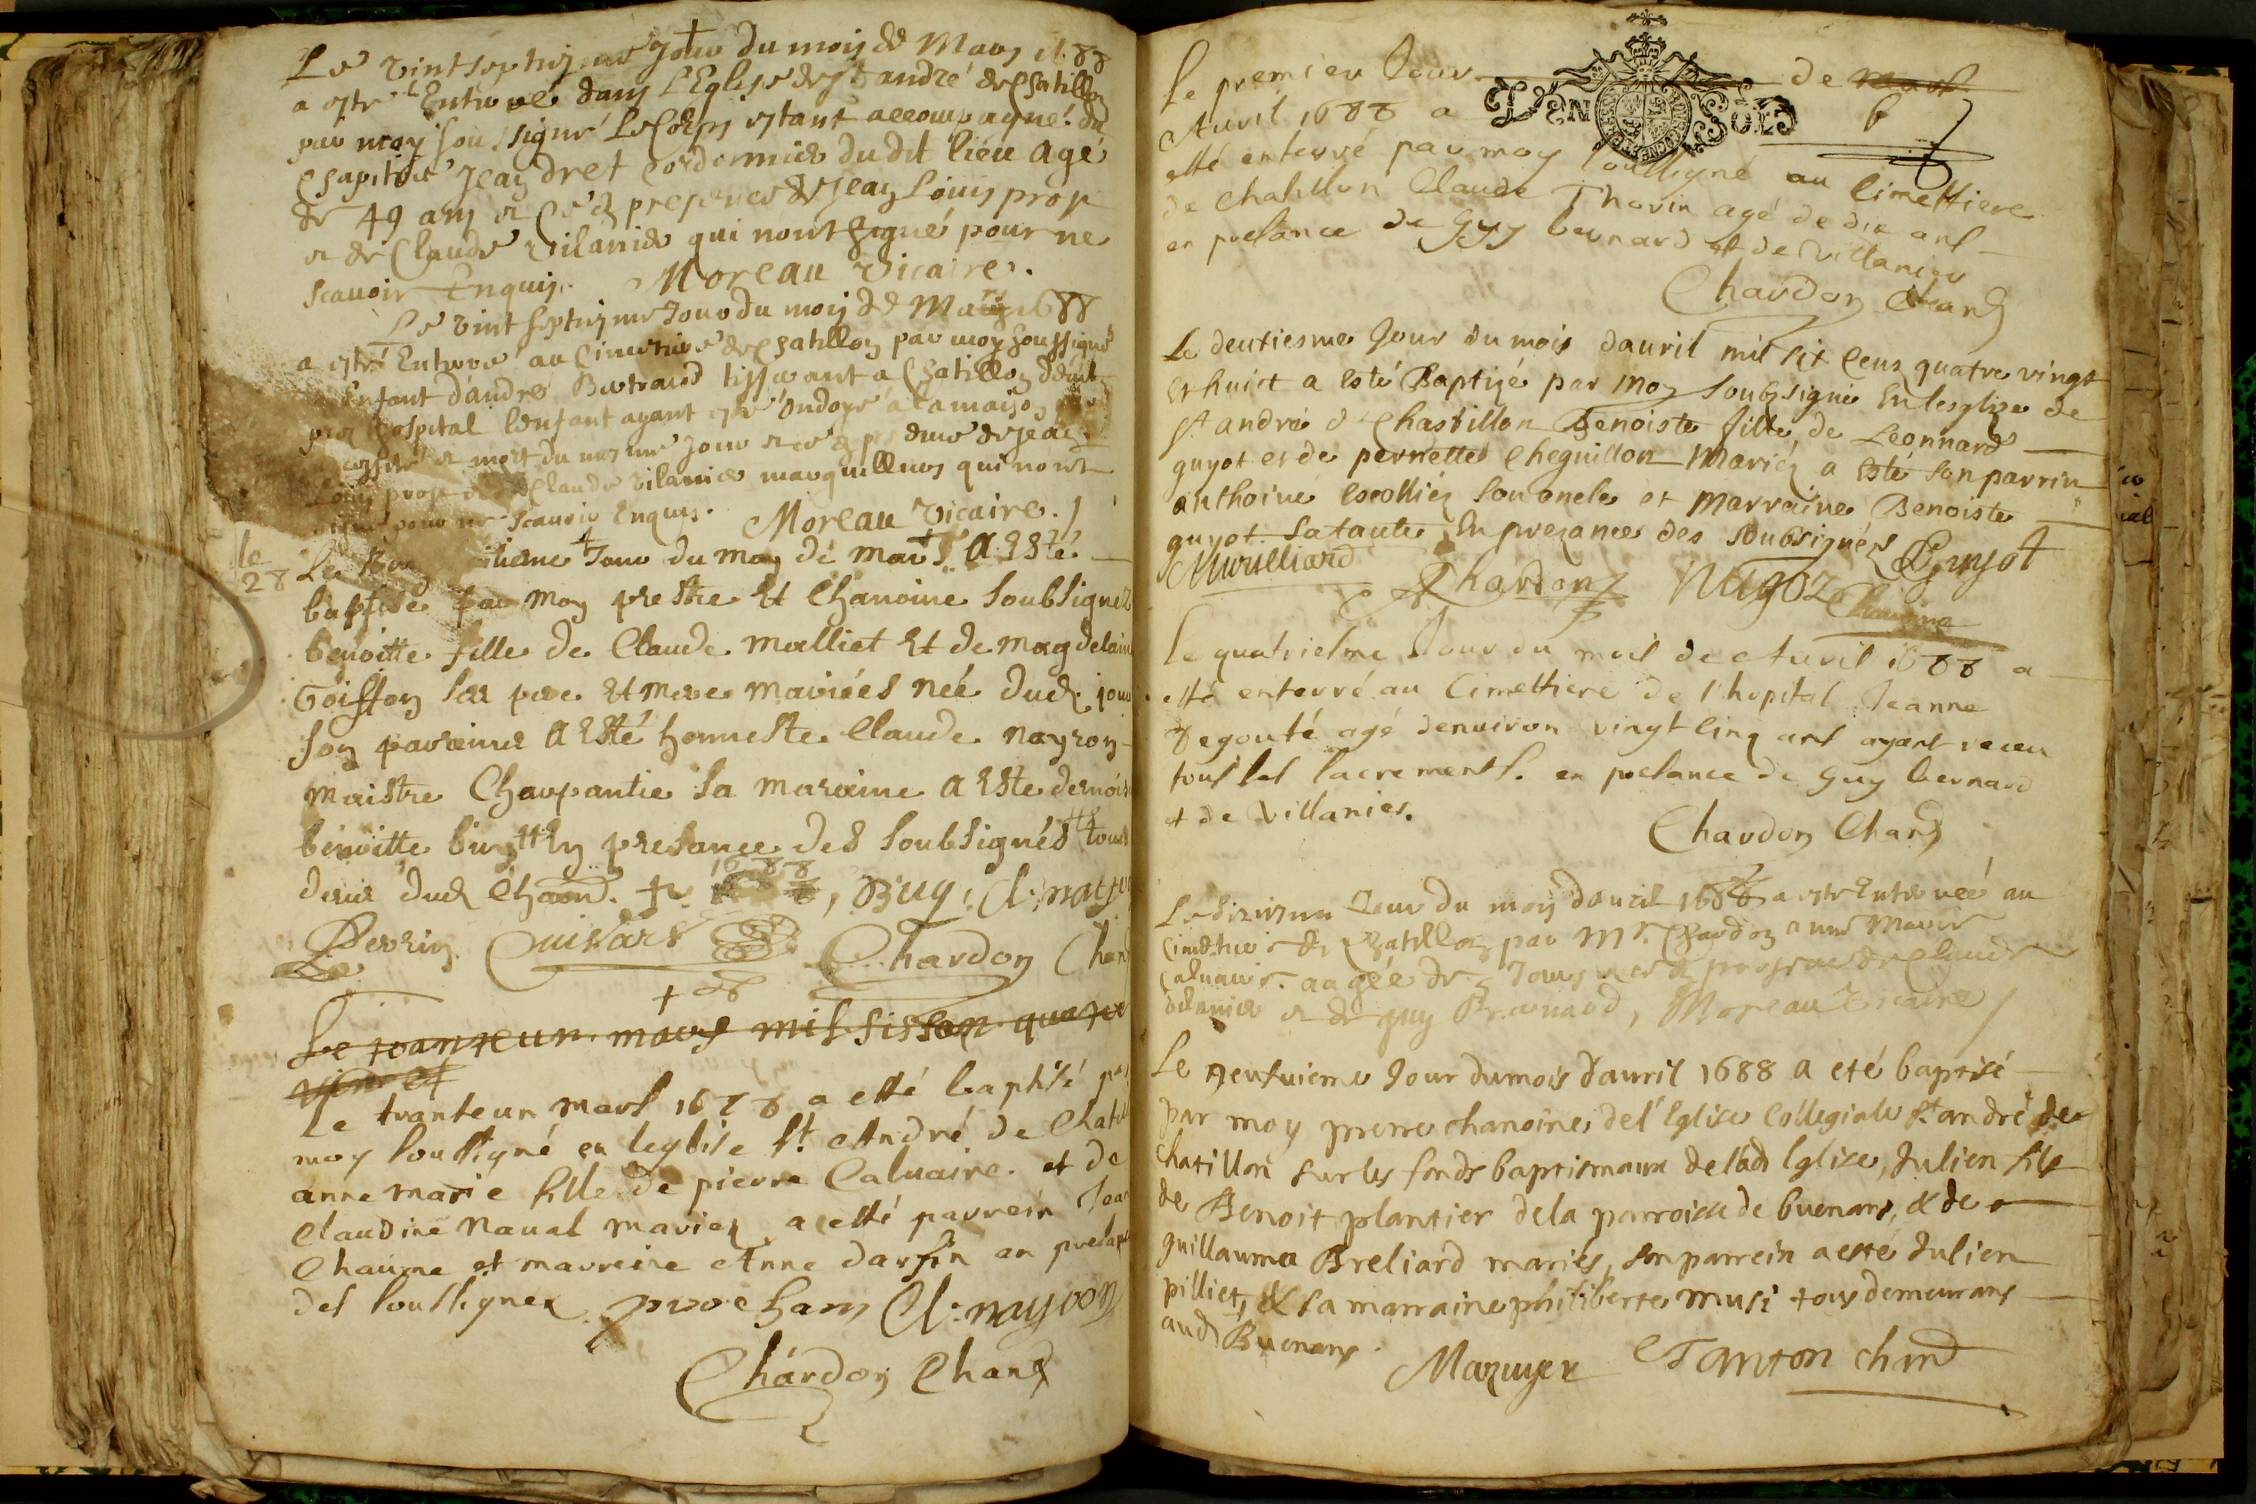 Le vintseptiesme Jour du mois de Mars 1688
a estré Enterré dans L'Eglise de st andré de Chatillon
par moy sousigné Le Corps estant accompagné du
Chapitre Jean dret Cordonnier du dit lieu agé
de 49 ans et Ce en presence de Jean Louis prost
et de Claude vilanier qui n'ont signé pour ne
scavoir Enquis. Moreau vicaire.
Le vint septiesme Jour du mois de Mars 1688
a estré Enterré au Cimetiere de Chatillon par moy soussigné
enfant d'andré Bertrand tisserant a Chatillon
pres l'hospital l'enfant ayant esté ondoyé a la maison
et mort du mesme jour et ce en presence de Jean
Louis prost et de Claude vilanier marguilliers qui n'ont
signé pour ne scavoir Enquis. Moreau vicaire.
le
28
Le itieme Jour du moy de mars A Esté
baptisée par moy prestre Et Chanoine soubsignez
benoitte fille de Claude malliet Et de magdelaine
Goiffon ses pere Et mere mariées née dud. jour
son parainez A Esté honneste Claude nayron
maistre Charpantie sa maraine A Este
benoitte buy Et En presance des soubsignés tous
dud Chaon. 1688, Buy, Cl. nayron
Perrin. Chardon Chan
Le tranteun mars mil sissan quatre
vint et
Le tranteun mars 1688 a esté baptisé par
moy soussigné en leglise st. André de Chatil
anne marie fille de pierre Caluaire et de
Claudine Naual mariez a esté parrein Jean
Chaume et marreine Anne darfin en presance
des soussignez prost Cl. nayron
Chardon Chan
Le premier Jour de mars
DEN SOLS 6
Avril 1688 a
esté enterré par moy soussigné au Cimettiere
de chatillon Claude Thorin agé de dix ans
en presance de Guy bernard et de Villanier
Chardon Chan
Le deuxiesme Jour du mois dauril mil six Cens quatre vingt
et huict a esté Baptizé par moy soubzsigné En lesglize de
st andré d Chastillon Benoiste fille de Leonnard
guyot et de pernette Cheguillon Mariéz a esté son parrin
anthoine Escolliez son oncle et marraine Benoiste
guyot sa tante En prezance des soubsignéz Guyot
Chardon Nugoz
Le quatriesme Jour du mois de Auril 1688 a
esté enterré au Cimettiere de l'hopital Jeanne
degouté agé denuiron vingt Cinq ans ayant receu
tous les sacrements. en presance de Guy bernard
et de Villanier.
Chardon Chan
Le Jour du mois dauril 1688 a estr Enterreé au
Cimetiere de Chatillon par Mr. Chardon anne Marie
Caluaire aagée de 5 Jours et ce en presence de Claude
vilanier et de guy Bernard, Moreau vicaire
Le neufuieme Jour du mois d'auril 1688 a eté baptisé
par moy pretre chanoine de l'Eglise Collegiale St. andré de
chatillon sur les fonds baptismaux de lad. Eglise, Julien fils
de Benoit plantier de la parroisse de buenans, & de
guillauma Breliard mariés, son parrein a esté Julien
pilliet, & sa marraine philiberte musi tous demeurans
aud Buenans.
Mazuyer Tanton chan